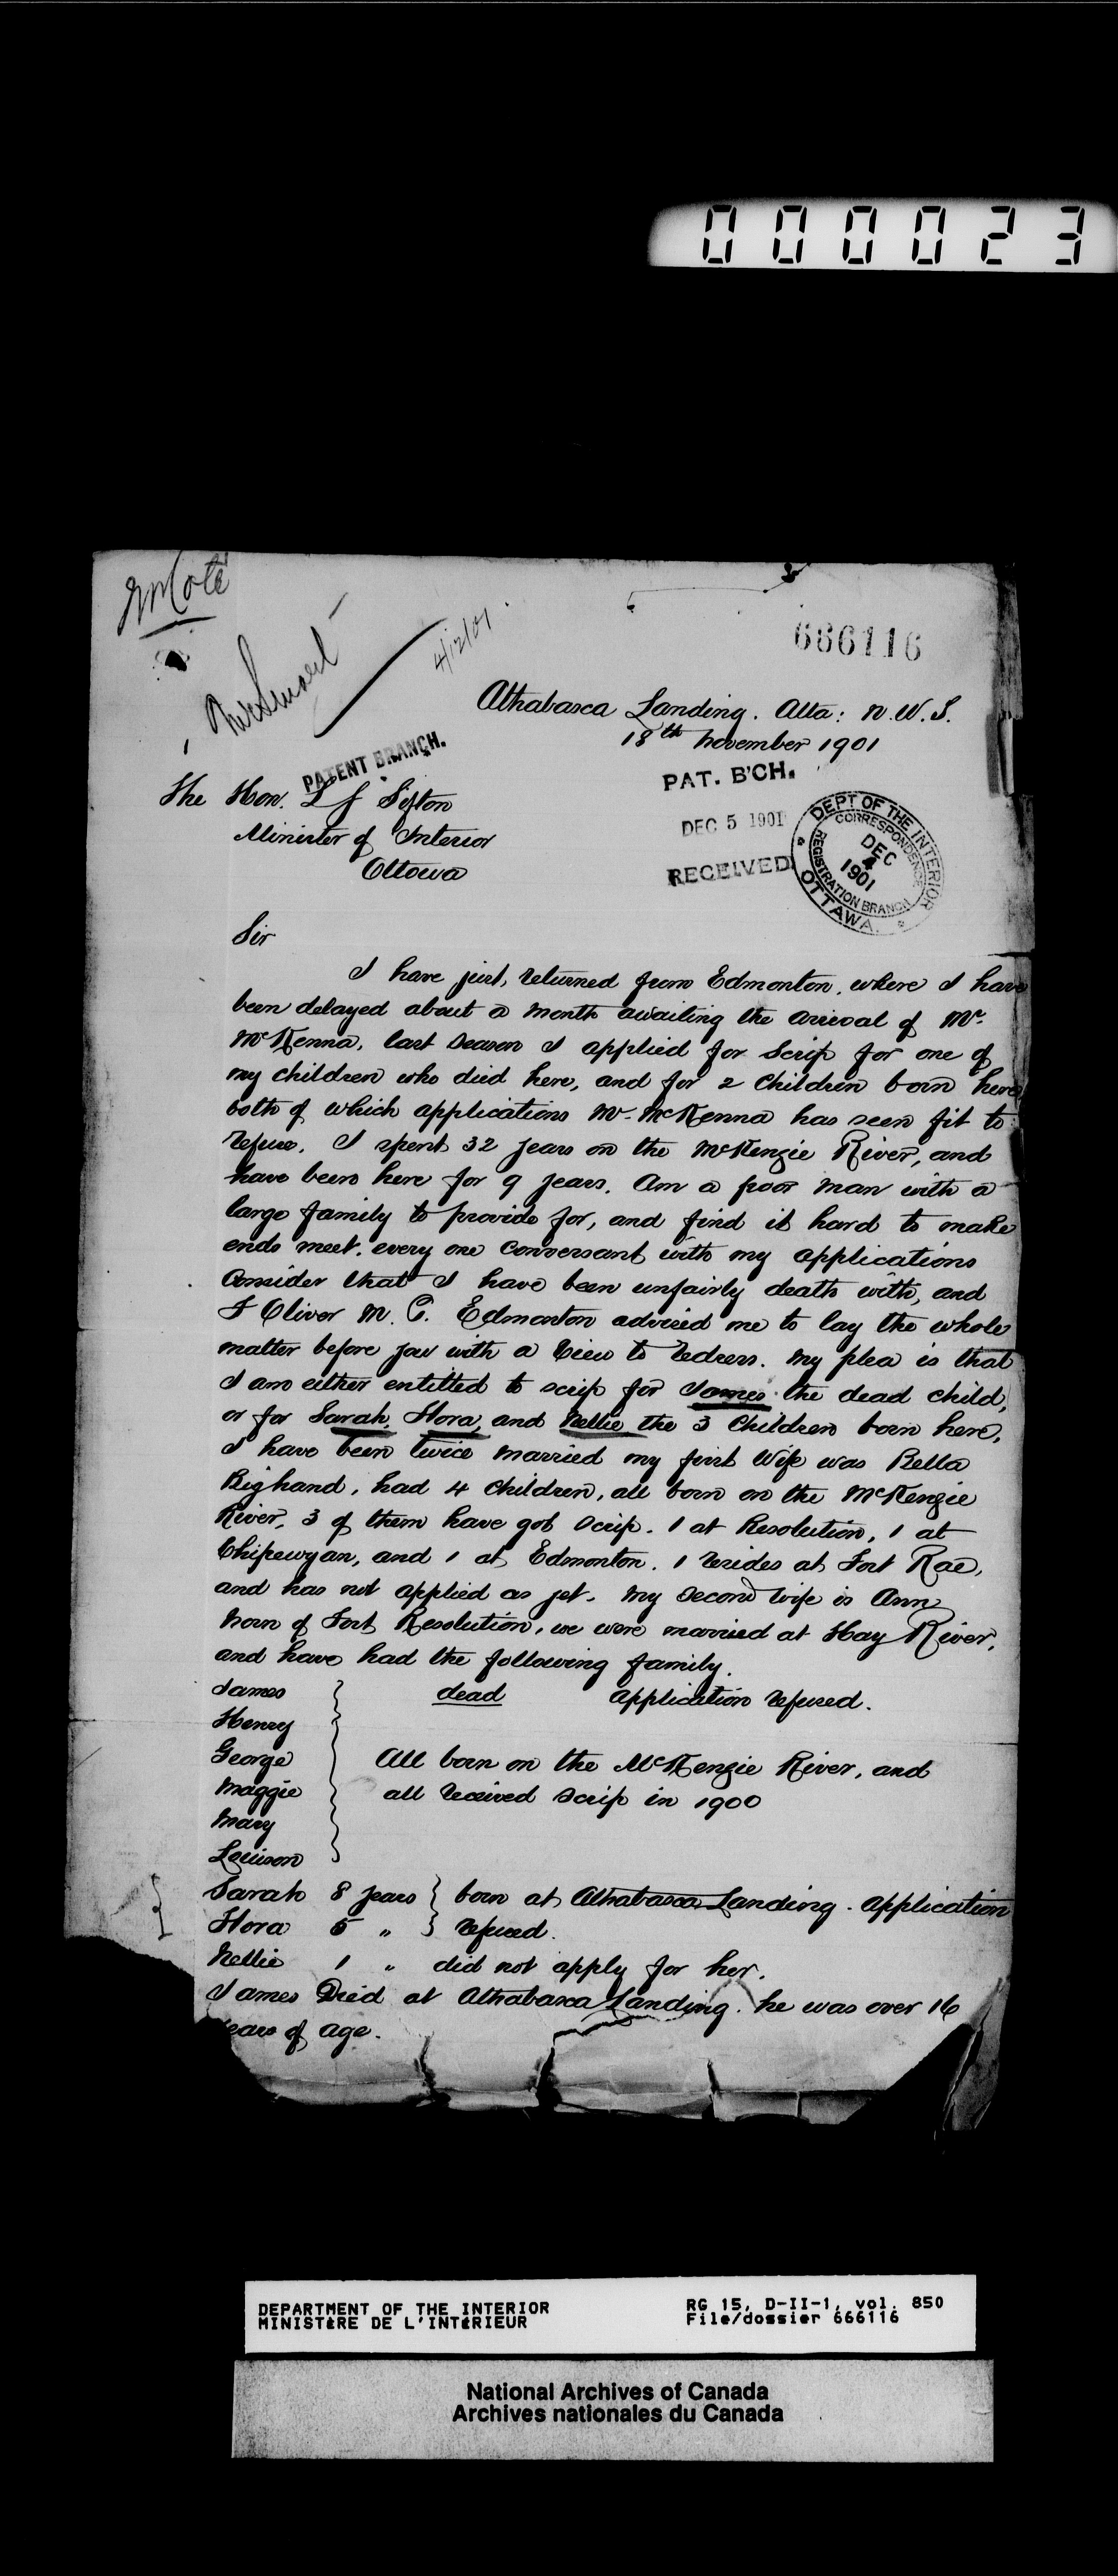 000023
JM Coté
4/12/01
666116
Athabasca Landing. Alta: N.W.T.
18th November 1901
PATENT BRANCH.
PAT. B'CH.
DEC 5 1901
RECEIVED
DEPT OF THE INTERIOR
CORRESPONDENCE
DEC
4
1901
REGISTRATION BRANCH
OTTAWA
The Hon. L f Sifton
Minister of Interior
Ottowa
Sir
I have just, returned from Edmonton, where I have
been delayed about a month awaiting the arrival of Mr.
McKenna, last season I applied for Scrip for one of
my children who died here, and for 2 children born here
both of which applications Mr. McKenna has seen fit to
refuse. I spent 32 years on the McKenzie River, and
have been here for 9 years. Am a poor man with a
large family to provide for, and find it hard to make
ends meet. every one conversant with my applications
Consider that I have been unfairly dealth with, and
F Oliver M. P. Edmonton advised me to lay the whole
matter before you with a View to redress. My plea is that
I am either entitled to scrip for James the dead child,
or for Sarah, Flora, and Nellie the 3 Children born here,
I have been twice married my first Wife was Bella
Bighand, had 4 children, all born on the McKenzie
River, 3 of them have got scrip. 1 at Resolution, 1 at
Chipewyan, and 1 at Edmonton. 1 resides at Fort Rae,
and has not applied as yet. My second wife is Ann
Norn of Fort Resolution, we were married at Hay River,
and have had the following family.
James dead application refused.
Henry
George All born on the McKenzie River, and
Maggie all received scrip in 1900
Mary
Louison
Sarah 8 years born at Athabasca Landing. application
Flora 5 " refused.
Nellie 1 " did not apply for her.
James Died at Athabasca Landing. he was over 16
years of age.
DEPARTMENT OF THE INTERIOR
MINISTÈRE DE L'INTÉRIEUR
RG 15, D-II-1, vol. 850
File/dossier 666116
National Archives of Canada
Archives nationales du Canada